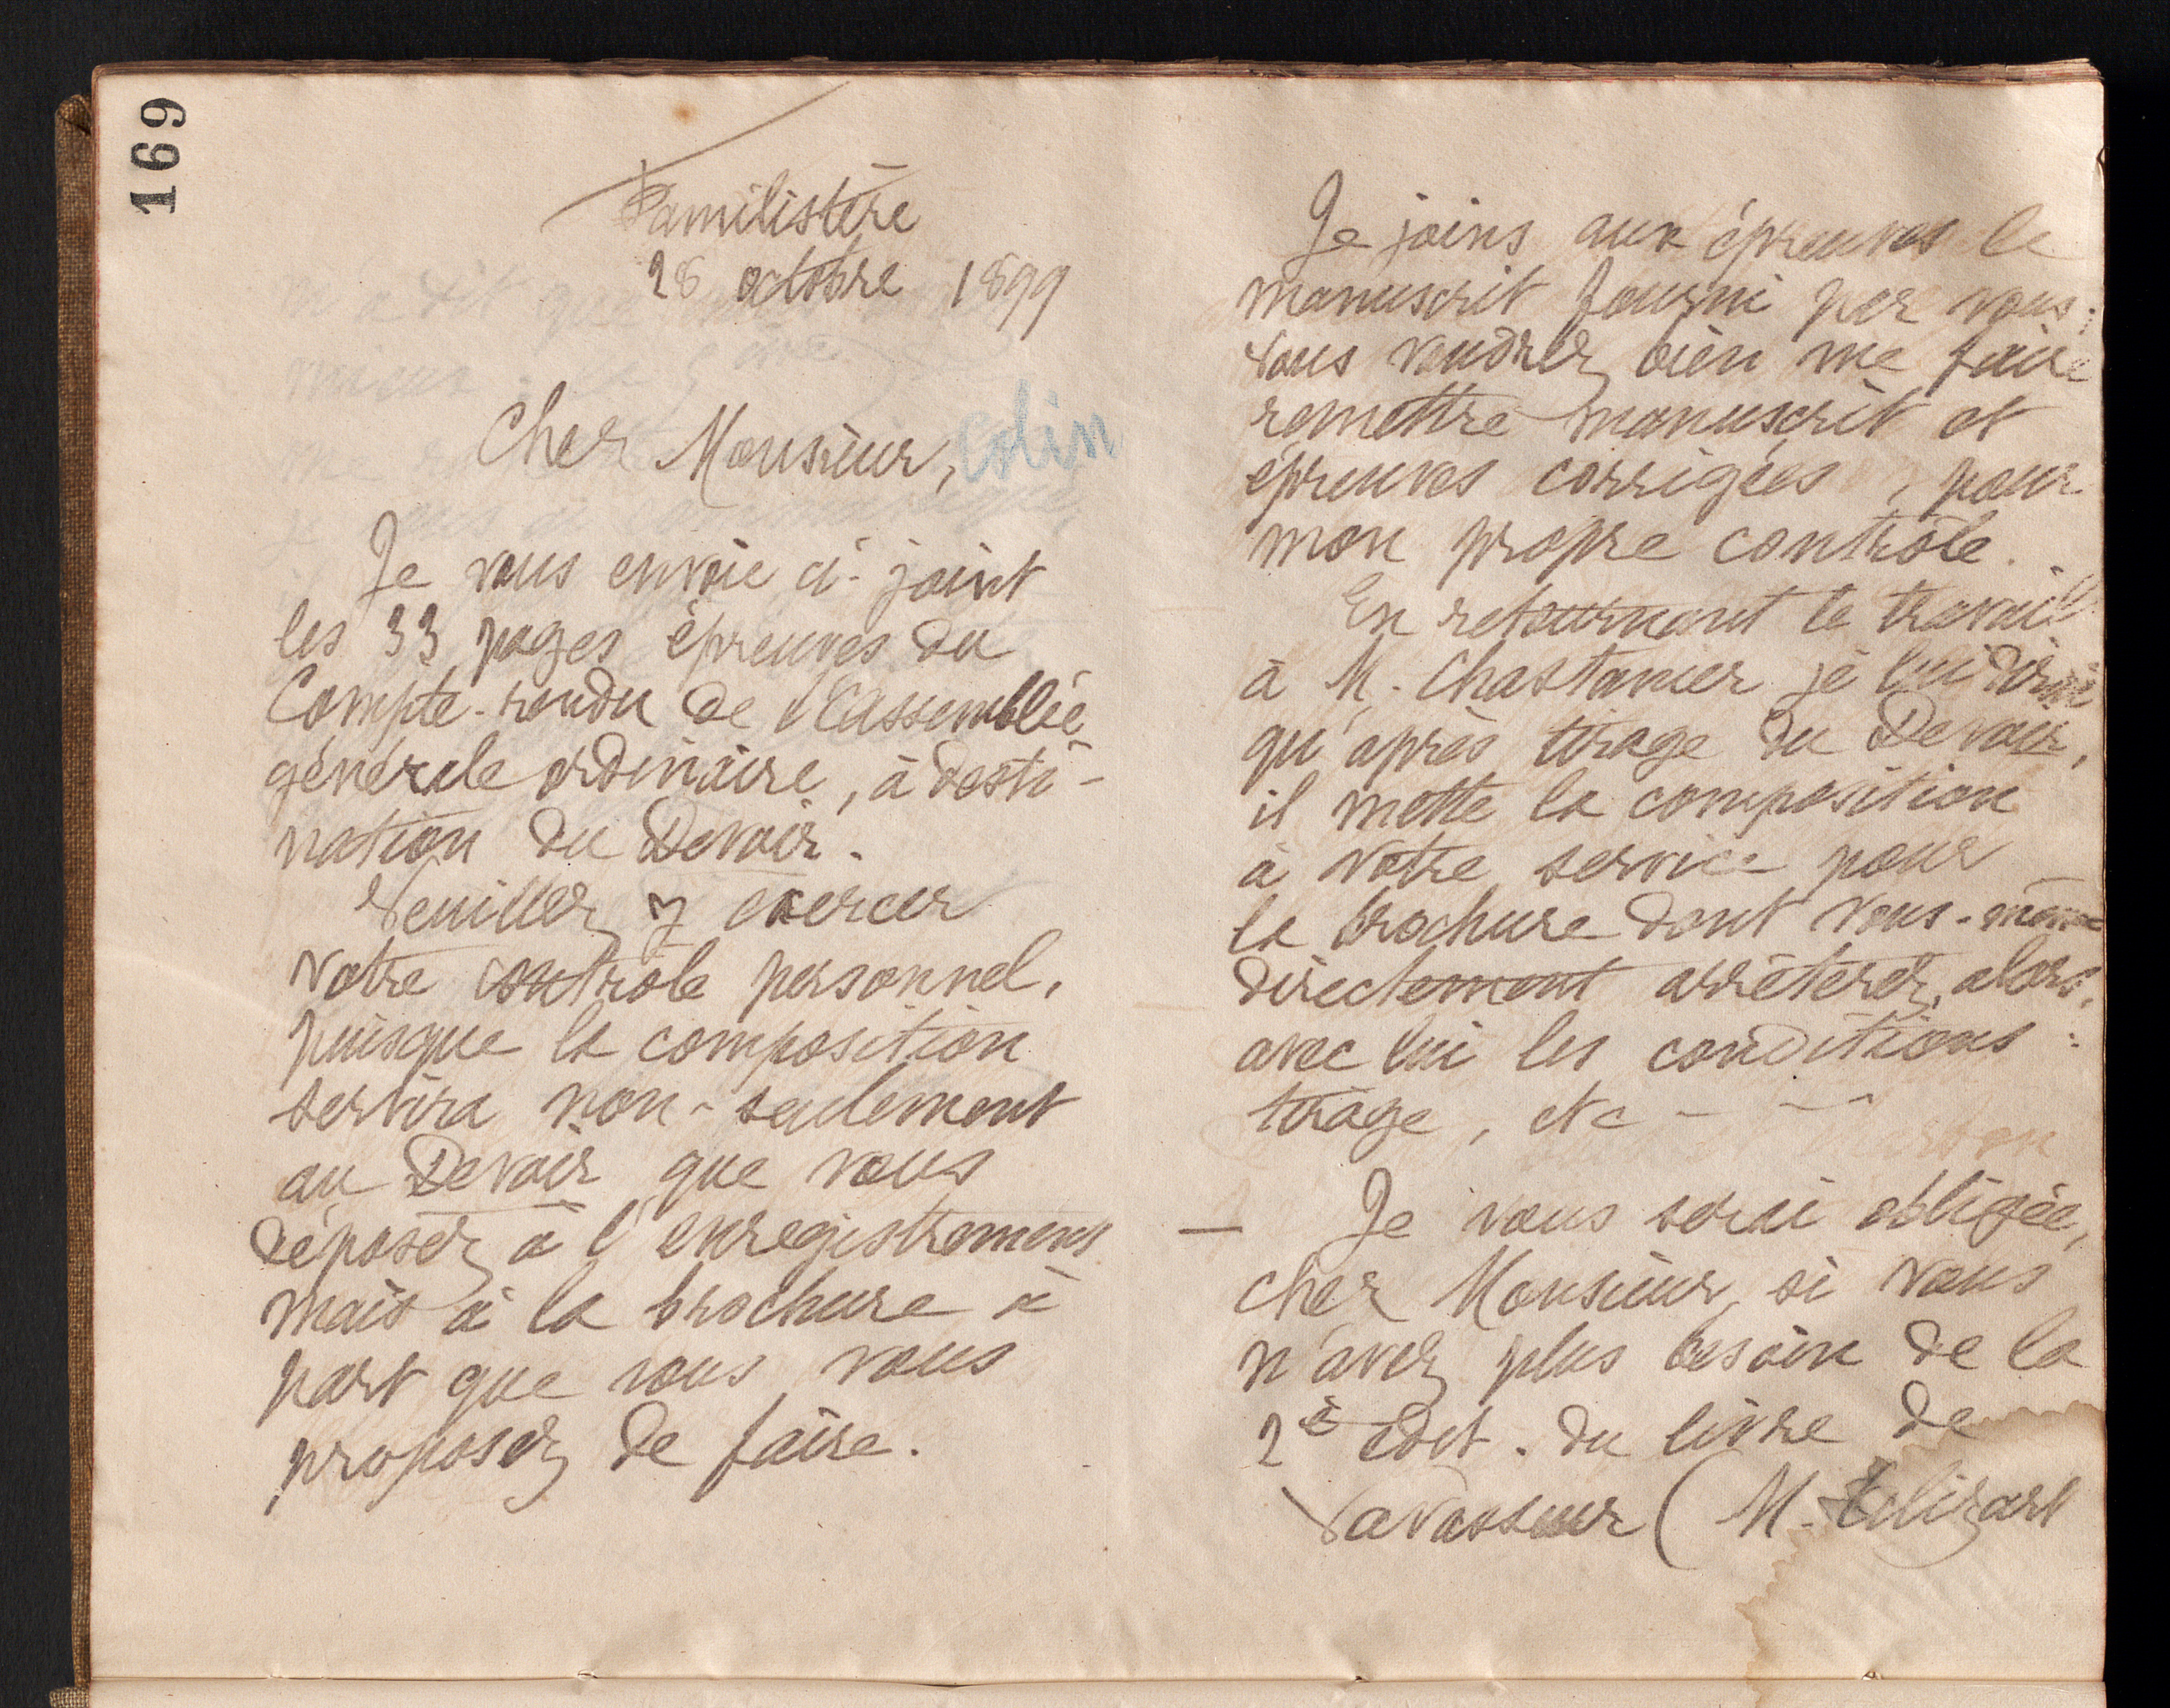 169
Familistère
28 octobre 1899
Cher Monsieur, Colin
Je vous envoie ci-joint
les 33 pages épreuves du
Compte-rendu de l'assemblée
générale ordinaire, à desti-
nation du Devoir.
Veuillez y exercer
votre contrôle personnel,
puisque la composition
servira non-seulement
au Devoir que vous
déposez à l'enregistrement
mais à la brochure à
part que vous vous
proposez de faire.
Je joins aux épreuves le
manuscrit fourni par vous;
vous voudrez bien me faire
remettre manuscrit et
épreuves corrigées, pour
mon propre contrôle.
En retournant le travail
à M. Chastanier je lui dirai
qu'après tirage du Devoir,
il mette la composition
à votre service pour
la brochure dont vous-même
directement arrêterez, alors,
avec lui les conditions :
tirage, etc - - -
— Je vous serai obligée,
cher Monsieur, si vous
n'avez plus besoin de la
2e édit. du livre de
Levasseur (M.